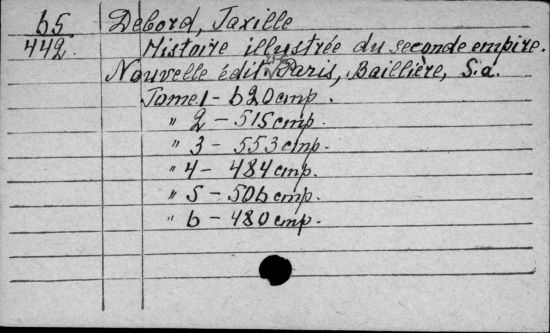 65 Debord, Taxille
442. Histoire illustrée du seconde empire.
Nouvelle édit. Paris, Baillière, S.a.
Tome 1 - 620 cmp.
" 2 - 515 cmp.
" 3 - 553 cmp.
" 4 - 484 cmp.
" 5 - 506 cmp.
" 6 - 480 cmp.